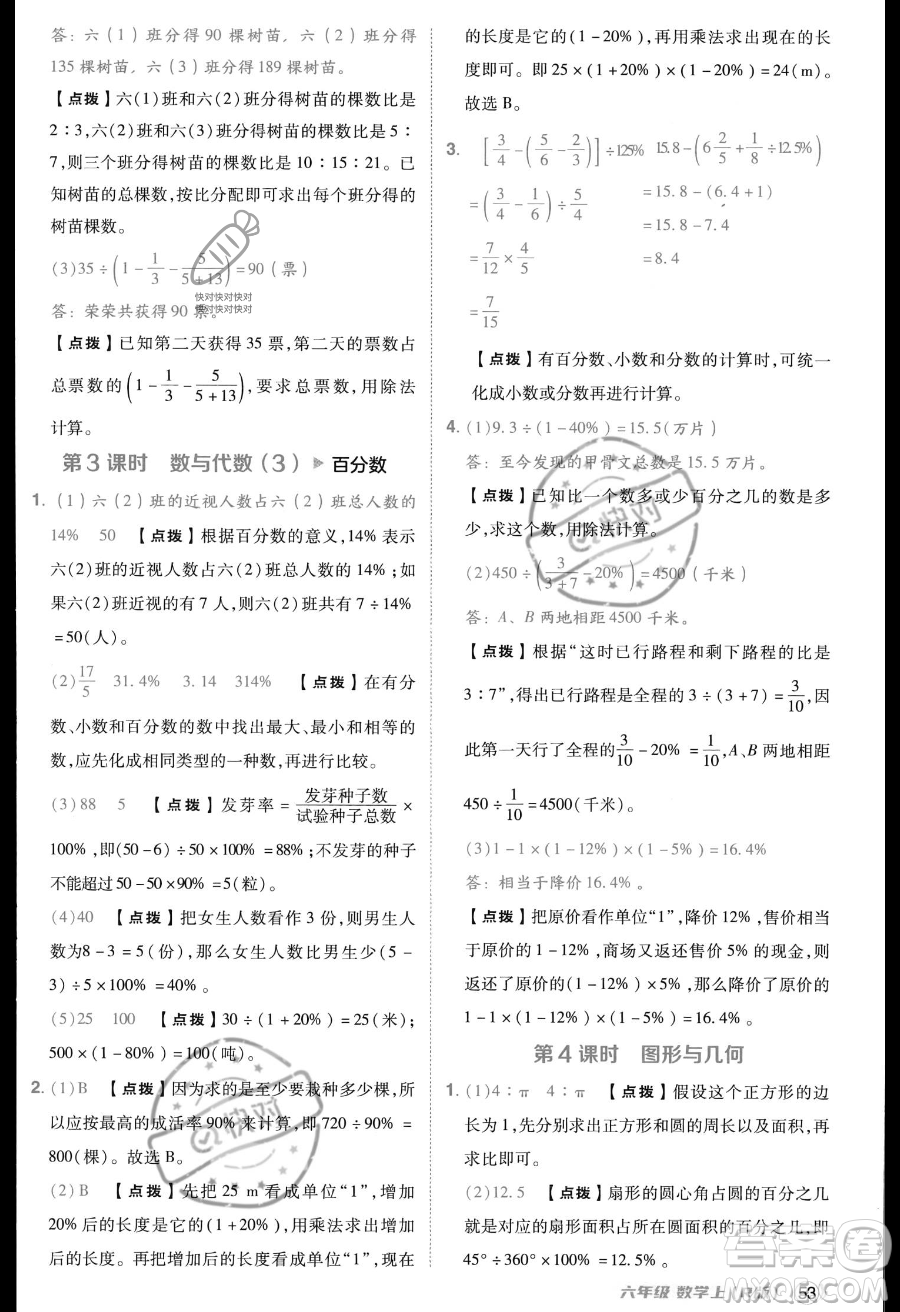 答：六（1）班分得 90 棵树苗，六（2）班分得
135 棵树苗，六（3）班分得 189 棵树苗。
【点拨】六(1)班和六(2)班分得树苗的棵数比是
2∶3,六(2)班和六(3)班分得树苗的棵数比是 5∶
7,则三个班分得树苗的棵数比是 10∶15∶21。已
知树苗的总棵数，按比分配即可求出每个班分得的
树苗棵数。
(3)35÷(1-1/3-5/(5+13))=90（票）
答：荣荣共获得 90 票。
【点拨】已知第二天获得 35 票，第二天的票数占
总票数的(1-1/3-5/(5+13))，要求总票数，用除法
计算。
第 3 课时　数与代数（3）▶百分数
1. （1）六（2）班的近视人数占六（2）班总人数的
14%　50　【点拨】根据百分数的意义，14% 表示
六(2)班的近视人数占六(2)班总人数的 14%；如
果六(2)班近视的有 7 人，则六(2)班共有 7÷14%
=50(人)。
(2)17/5　31.4%　3.14　314%　【点拨】在有分
数、小数和百分数的数中找出最大、最小和相等的
数，应先化成相同类型的一种数，再进行比较。
(3)88　5　【点拨】发芽率=发芽种子数/试验种子总数×
100%，即(50-6)÷50×100%=88%；不发芽的种子
不能超过50-50×90%=5(粒)。
(4)40　【点拨】把女生人数看作 3 份，则男生人
数为8-3=5(份)，那么女生人数比男生少(5-
3)÷5×100%=40%。
(5)25　100　【点拨】30÷(1+20%)=25(米)；
500×(1-80%)=100(吨)。
2. (1)B　【点拨】因为求的是至少要栽种多少棵，所
以应按最高的成活率 90% 来计算，即 720÷90%=
800(棵)。故选 B。
(2)B　【点拨】先把 25 m 看成单位“1”，增加
20% 后的长度是它的(1+20%)，用乘法求出增加
后的长度。再把增加后的长度看成单位“1”，现在
的长度是它的(1-20%)，再用乘法求出现在的长
度即可。即 25×(1+20%)×(1-20%)=24(m)。
故选 B。
3. [3/4-(5/6-2/3)]÷125%　15.8-(6 2/5+1/8÷12.5%)
=(3/4-1/6)÷5/4　=15.8-(6.4+1)
=7/12×4/5　=15.8-7.4
=7/15　=8.4
【点拨】有百分数、小数和分数的计算时，可统一
化成小数或分数再进行计算。
4. (1)9.3÷(1-40%)=15.5(万片)
答：至今发现的甲骨文总数是 15.5 万片。
【点拨】已知比一个数多或少百分之几的数是多
少，求这个数，用除法计算。
(2)450÷(3/(3+7)-20%)=4500(千米)
答：A、B 两地相距 4500 千米。
【点拨】根据“这时已行路程和剩下路程的比是
3∶7”，得出已行路程是全程的 3÷(3+7)=3/10,因
此第一天行了全程的3/10-20%=1/10,A、B 两地相距
450÷1/10=4500(千米)。
(3)1-1×(1-12%)×(1-5%)=16.4%
答：相当于降价 16.4%。
【点拨】把原价看作单位“1”，降价 12%，售价相当
于原价的 1-12%，商场又返还售价 5% 的现金，则
返还了原价的(1-12%)×5%，那么相当于降价
1-1×(1-12%)×(1-5%)=16.4%。
第 4 课时　图形与几何
1. (1)4∶π　4∶π　【点拨】假设这个正方形的边
长为 1,先分别求出正方形和圆的周长以及面积，再
求比即可。
(2)12.5　【点拨】扇形的圆心角占圆的百分之几
就是对应的扇形面积占所在圆面积的百分之几,即
45°÷360°×100%=12.5%。
六年级 数学上
53
快对快对快对
快对快对快对
快对
快对
答案圈